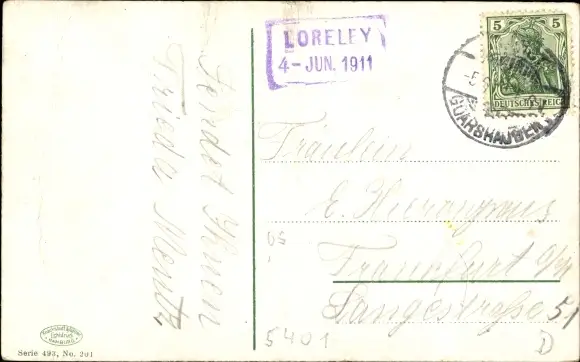 LORELEY
4-JUN. 1911
5 5
DEUTSCHES REICH
GOARSHAUSEN
Fräulein
E. Hieronymus
Frankfurt a/M
Langestraße 51
Sendet Ihnen
Frieda Mentz
65
5401
D
HAMBURG
Serie 493, No. 201